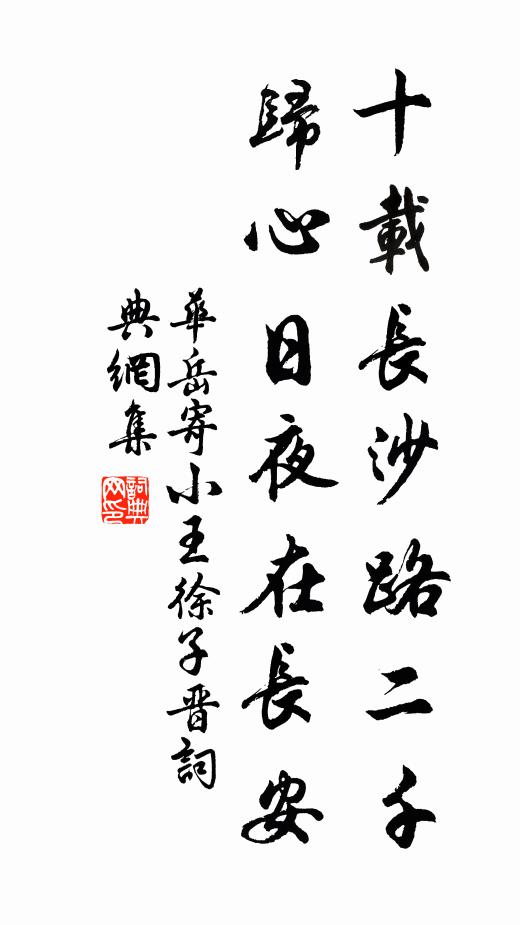 十載長沙路二千
歸心日夜在長安
華岳寄小王徐子晋詞
典網集
詞典
网印